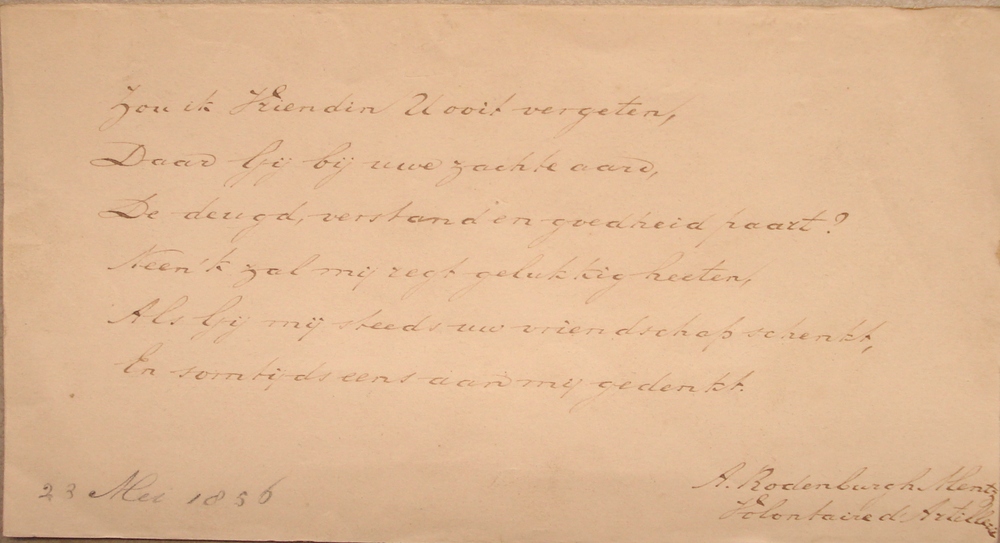 Zou ik Vriendin U ooit vergeten,
Daar Gij bij uwe zachte aard,
De deugd, verstand en goedheid paart?
Neen 'k zal mij regt gelukkig heeten,
Als Gij mij steeds uw vriendschap schenkt,
En somtijds eens aan mij gedenkt.
23 Mei 1856
A. Rodenburgh Mentz
Volontair d'Artillerie